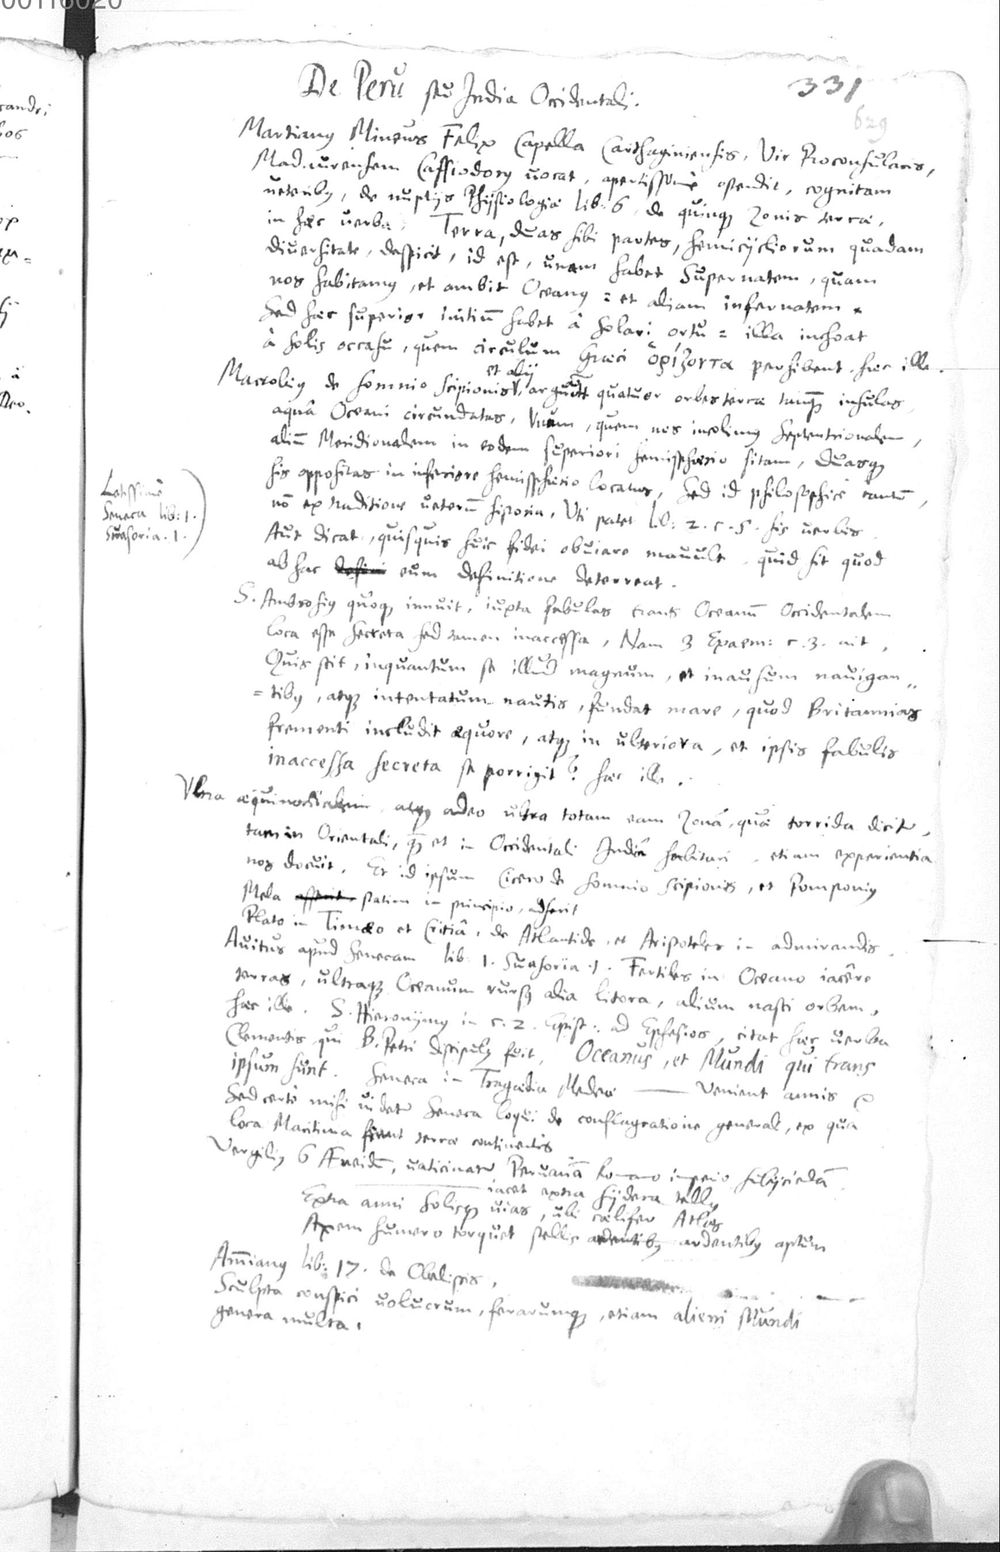 00116020
De Perù seu India Occidentali.
331
629
Martianus Mineus Felix Capella Carthaginiensis, Vir Proconsularis,
Madaurensem Cassiodorus uocat, apertissimè ostendit, cognitam
ueteribus, de nuptijs Physiologiæ lib: 6. de quinque zonis terræ,
in hæc uerba: Terra, duas sibi partes, hemicycliorum quadam
diuersitate, despicit, id est, unam habet Supernatem, quam
nos habitamus, et ambit Oceanus: et aliam infernatem:
Sed hæc superior initiũ habet à solari ortu: illa inchoat
à solis occasu, quem circulum Græci ὁρίζοντα perhibent. hæc ille.
et alij
Macrobius de somnio Scipionis, arguũt quatuor orbes terræ tanq̃ insulas
aquâ Oceani circundatas, Vnam, quem nos incolimus Septentrionalem,
aliũ Meridionalem in eodem superiori hemisphærio sitam, duasque
his oppositas in inferiore hemisphærio locatas, Sed id philosophicè tantũ,
nõ ex traditione ueterũ historia, Vti patet lib: 2. c. 5. his uerbis.
Aut dicat, quisquis huic fidei obuiare mauult, quid sit quod
ab hac eum definitione deterreat.
Latissimè
Seneca lib: 1.
Suasoria. 1.
S. Ambrosius quoque innuit, iuxta fabulas trans Oceanũ Occidentalem
loca esse secreta sed tamen inaccessa, Nam 3 Exaem: c. 3. ait,
Quis scit, inquantum se illud magnum, et inausum nauigan„
=tibus, atque intentatum nautis, fundat mare, quod Britannias
frementi includit æquore, atque in ulteriora, et ipsis fabulis
inaccessa secreta se porrigit? hæc ille.
Vltra æquinoctialem, atque adeo ultra totam eam zonã, quæ torrida dicitur,
tam in Orientali, q̃ et in Occidentali Indiâ habitari, etiam experientia
nos docuit. Et id ipsum Cicero de somnio Scipionis, et Pomponius
Mela statim in principio, asserit
Plato in Timæo et Critiâ, de Atlantide, et Aristoteles in admirandis.
Auitus apud Senecam lib: 1. Suasoria. 1. Fertiles in Oceano iacêre
terras, ultraque Oceanum rursus alia litora, alium nasci orbem,
hæc ille. S. Hieronymus in c. 2. Epist: ad Ephesios, citat hæc uerba
Clementis, qui B. Petri discipulus fuit, Oceanus, et Mundi qui trans
ipsum sunt. Seneca in Tragædia Medea —— Venient annis
Sed certè mihi uidetur Seneca loqui de conflagratione generali, ex quâ
loca Maritima fient terræ continentis
Vergilius 6 Æneidũ, uaticinatur Peruaniã Romano imperio subijciendã.
iacet extra sydera tellus
Extra anni solisque uias, ubi cœlifer Atlas
Axem humero torquet stellis ardentibus aptum
Ammianus lib: 17. de Obeliscis,
Sculpta conspici uolucrum, ferarumque, etiam alieni Mundi
genera multa.